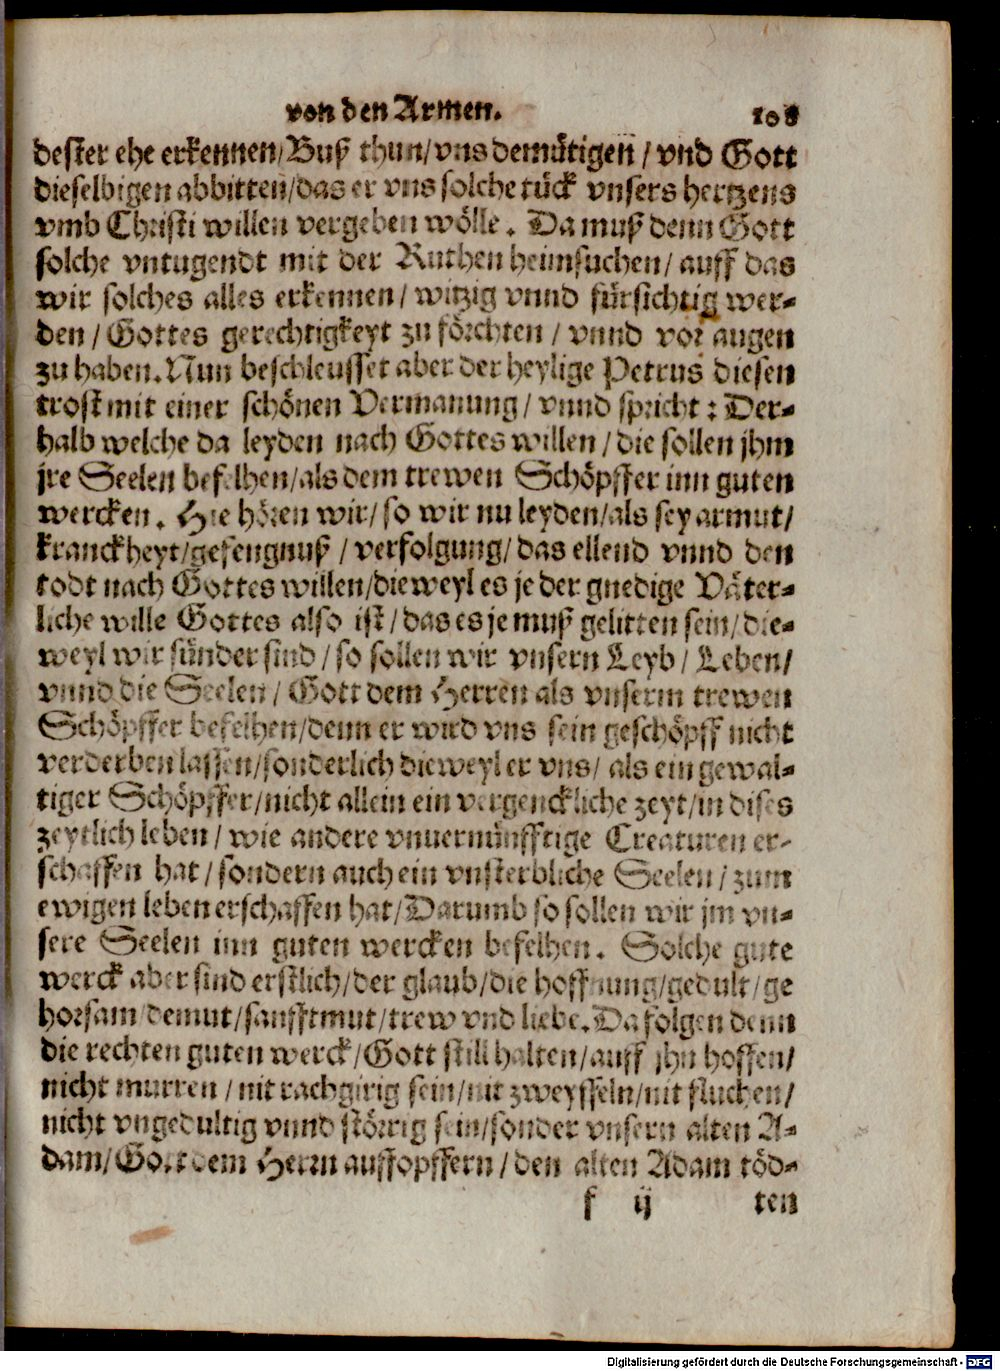 von den Armen. 108
dester ehe erkennen/Buß thun/vns demütigen/vnd Gott
dieselbigen abbitten/das er vns solche tück vnsers hertzens
vmb Christi willen vergeben wölle. Da muß denn Gott
solche vntugendt mit der Ruthen heimsuchen/auff das
wir solches alles erkennen/witzig vnnd fürsichtig wer-
den/Gottes gerechtigkeyt zu förchten/vnnd vor augen
zu haben. Nun beschleusset aber der heylige Petrus diesen
trost mit einer schönen Vermanung/vnnd spricht: Der-
halb welche da leyden nach Gottes willen/die sollen jhm
jre Seelen befelhen/als dem trewen Schöpffer inn guten
wercken. Hie hören wir/so wir nu leyden/als sey armut/
kranckheyt/gefengnuß/verfolgung/das ellend vnnd den
todt nach Gottes willen/dieweyl es je der gnedige Väter-
liche wille Gottes also ist/das es je muß gelitten sein/die-
weyl wir sünder sind/so sollen wir vnsern Leyb/Leben/
vnnd die Seelen/Gott dem Herren als vnserm trewen
Schöpffer befelhen/denn er wird vns sein geschöpff nicht
verderben lassen/sonderlich dieweyl er vns/als ein gewal-
tiger Schöpffer/nicht allein ein vergenckliche zeyt/in dises
zeytlich leben/wie andere vnuernünfftige Creaturen er-
schaffen hat/sondern auch ein vnsterbliche Seelen/zum
ewigen leben erschaffen hat/Darumb so sollen wir jm vn-
sere Seelen inn guten wercken befelhen. Solche gute
werck aber sind erstlich/der glaub/die hoffnung/gedult/ge
horsam/demut/sanfftmut/trew vnd liebe. Da folgen denn
die rechten guten werck/Gott still halten/auff jhn hoffen/
nicht murren/nit rachgirig sein/nit zweyffeln/nit fluchen/
nicht vngedultig vnnd störrig sein/sonder vnsern alten A-
dam/Gott dem Herrn auffopffern/den alten Adam töd-
f ij ten
Digitalisierung gefördert durch die Deutsche Forschungsgemeinschaft - DFG